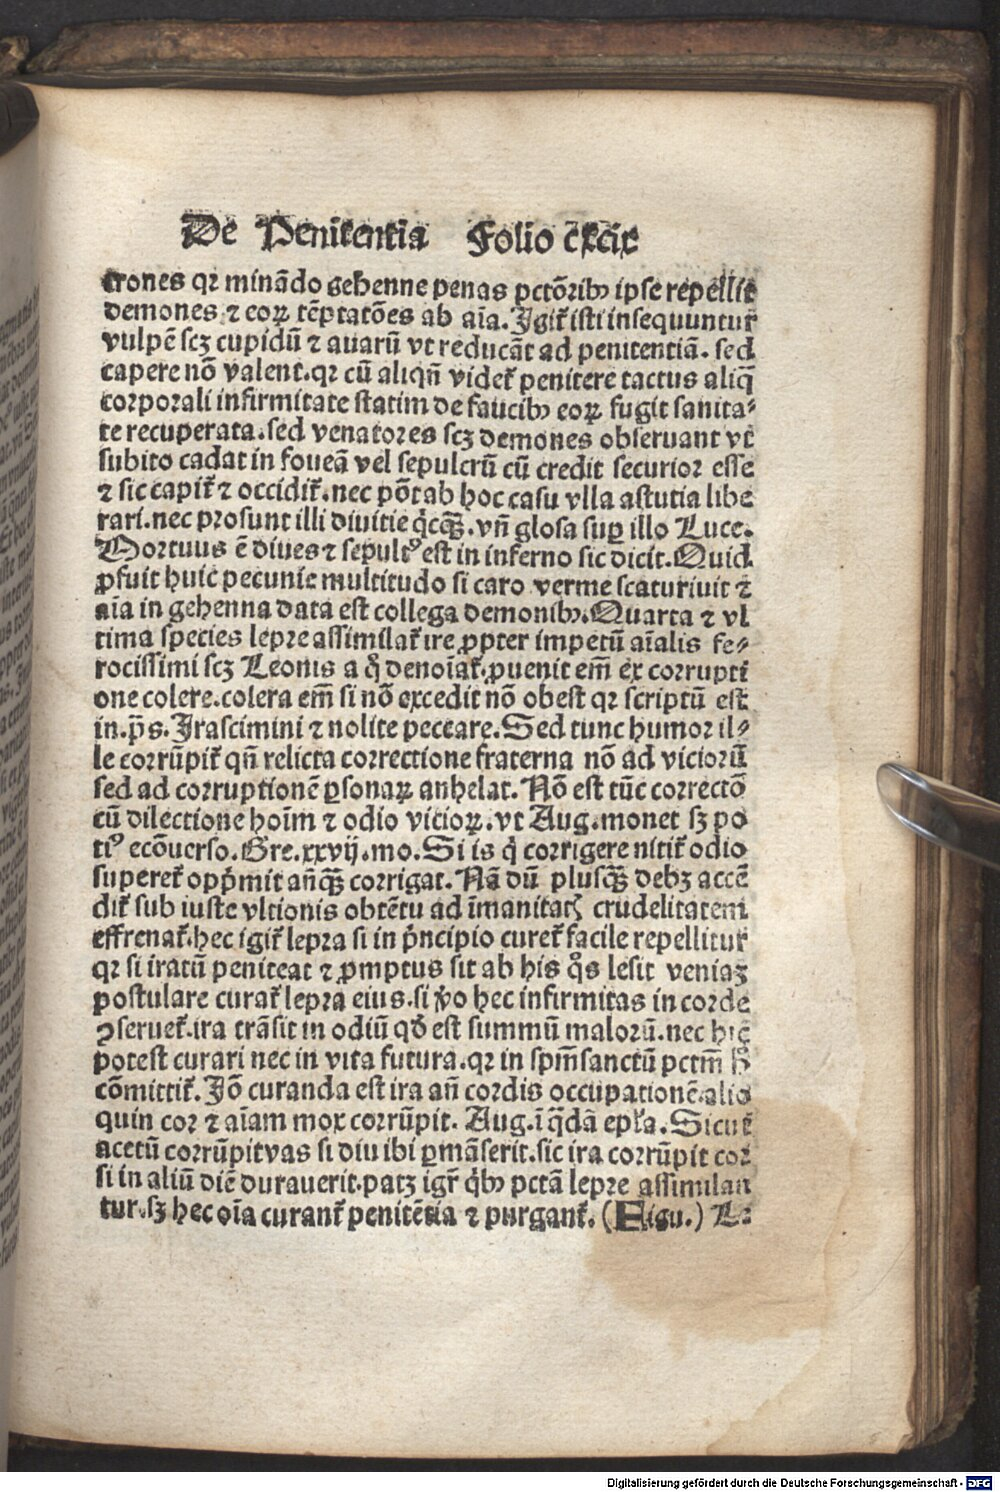 De Penitentia Folio cxcix
trones qr minãdo gehenne penas pctõribꝫ ipse repellit
demones ⁊ eoꝝ tẽptatões ab aĩa. Igit᷑ isti insequuntur
vulpẽ scꝫ cupidũ ⁊ auarũ vt reducãt ad penitentiã. sed
capere nõ valent. qr cũ aliqñ videt᷑ penitere tactus aliq̃
corporali infirmitate statim de faucibꝫ eoꝝ fugit sanita⸗
te recuperata. sed venatores scꝫ demones obseruant vt
subito cadat in foueã vel sepulcrũ cũ credit securior esse
⁊ sic capit᷑ ⁊ occidit᷑. nec põt ab hoc casu vlla astutia libe
rari. nec prosunt illi diuitie q̊cq̃ꝫ. vñ glosa suꝑ illo Luce.
Mortuus ẽ diues ⁊ sepultꝰ est in inferno sic dicit. Quid
ꝓfuit huic pecunie multitudo si caro verme scaturiuit ⁊
aĩa in gehenna data est collega demonibꝫ. Quarta ⁊ vl
tima species lepre assimilat᷑ ire ꝓpter impetũ aĩalis fe⸗
rocissimi scꝫ Leonis a q̊ denoĩat᷑. ꝓuenit em̃ ex corrupti
one colere. colera em̃ si nõ excedit nõ obest qr scriptũ est
in. p̃s. Irascimini ⁊ nolite peccare. Sed tunc humor il⸗
le corrũpit᷑ qñ relicta correctione fraterna nõ ad viciorũ
sed ad corruptionẽ ꝑsonaꝝ anhelat. Nõ est tũc correctõ
cũ dilectione hoĩm ⁊ odio vicioꝝ. vt Aug. monet sꝫ po
tiꝰ ecõuerso. Gre. xxvij. mo. Si is q̇ corrigere nitit᷑ odio
superet᷑ opp̃mit añq̃ꝫ corrigat. Nã dũ plusq̃ꝫ debꝫ accẽ
dit᷑ sub iuste vltionis obtẽtu ad ĩmanitatꝫ crudelitatem
effrenat᷑. hec igit᷑ lepra si in p̃ncipio curet᷑ facile repellitur
qr si iratũ peniteat ⁊ ꝓmptus sit ab his q̊s lesit veniaꝫ
postulare curat᷑ lepra eius. si v̊o hec infirmitas in corde
ꝯseruet᷑. ira trãsit in odiũ qđ est summũ malorũ. nec hic
potest curari nec in vita futura. qr in spm̃ sanctũ pctm̃ h̊
cõmittit᷑. Iõ curanda est ira añ cordis occupationẽ. alio
quin cor ⁊ aĩam mox corrũpit. Aug. ĩ q̃dã epl̃a. Sicut
acetũ corrũpit vas si diu ibi ꝑmãserit. sic ira corrũpit cor
si in aliũ diẽ durauerit. patꝫ igr̃ q̇bꝫ pctã lepre assimilan
tur. sꝫ hec oĩa curant᷑ penitẽtia ⁊ purgant᷑. (Figu.)
Digitalisierung gefördert durch die Deutsche Forschungsgemeinschaft - DFG